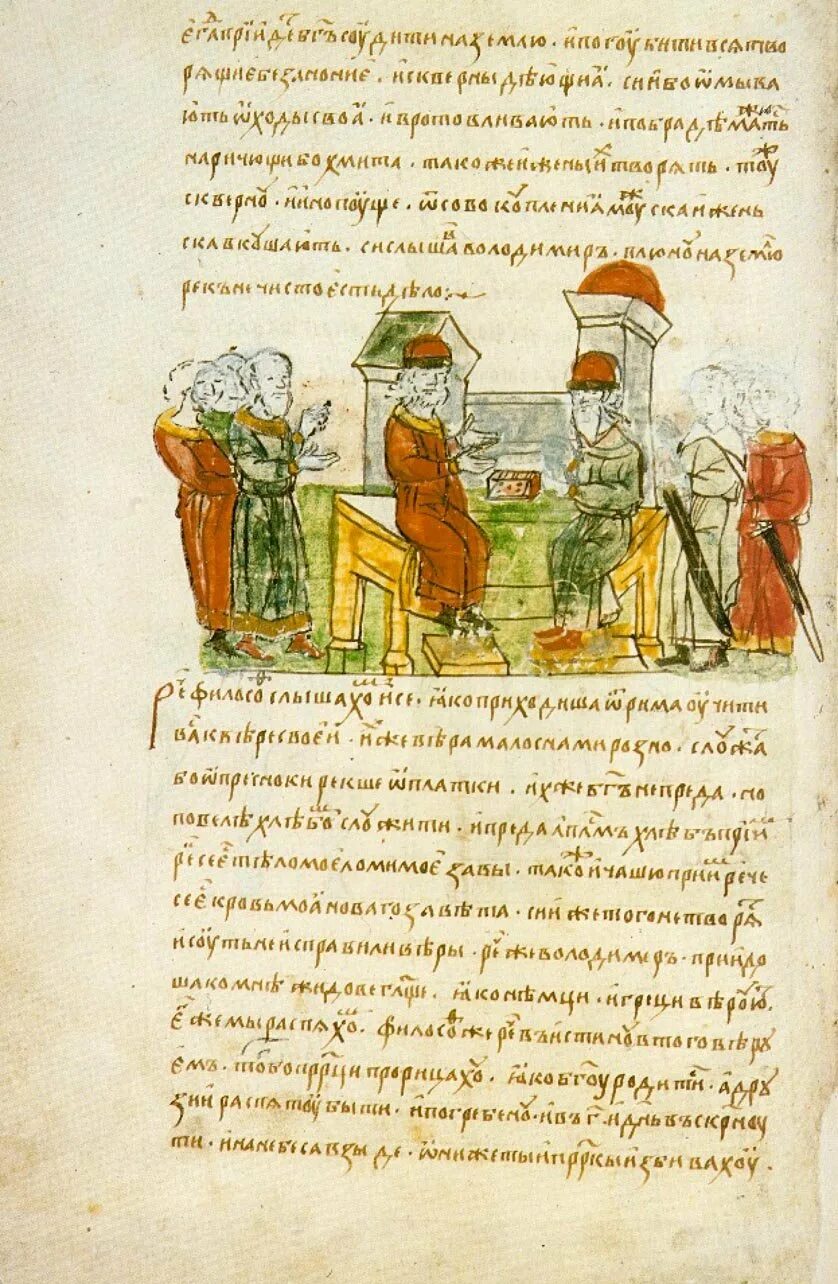 егда прїидеть б҃гъ соудити на землю · и погоубити вся тво
рящие безаконие · и скверны дѣющиа · сии бо ѡмыва
ють ѿходы своа · и в рот вливають · и по браде мажють
наричюще бохмита · тако же и жены их творять · тоу ж
скверноу · и ино поуще · ѿ совокоупления моужска и жень
ска вкоушають · си слышав володимиръ · плюноу на землю
рекъ нечисто есть дѣло :~
Рече философ слышахом и се · яко приходиша ѿ рима оучити
вас к вѣре своей · их же вѣра мало с нами розно · слоужат
бо ѡпресноки рекше ѡплатки · их же б҃гъ не преда · но
повелѣ хлѣбом слоужити · и преда ап҃лмъ хлѣбъ приим
рек се ес тѣло мое ломимое за вы · тако ж и чашю приим рече
се ес кровь моа новаго завѣта · сии же того не творят
и соуть не исправили вѣры · рече же володимеръ · приидо
ша ко мнѣ жидове гл҃ще · яко нѣмци · и греци вѣроують
его же мы распяхом · философ же рече въистинноу в того вѣроу
емъ · тѣх бо пр҃рци прорицахоу · яко б҃гоу родитис · а дроу
зии распятоу быти · и погребеноу · и в г҃ и д҃нь въскр҃сноу
ти · и на небеса взыде · ѡни же ты и пр҃ркы избивахоу ·